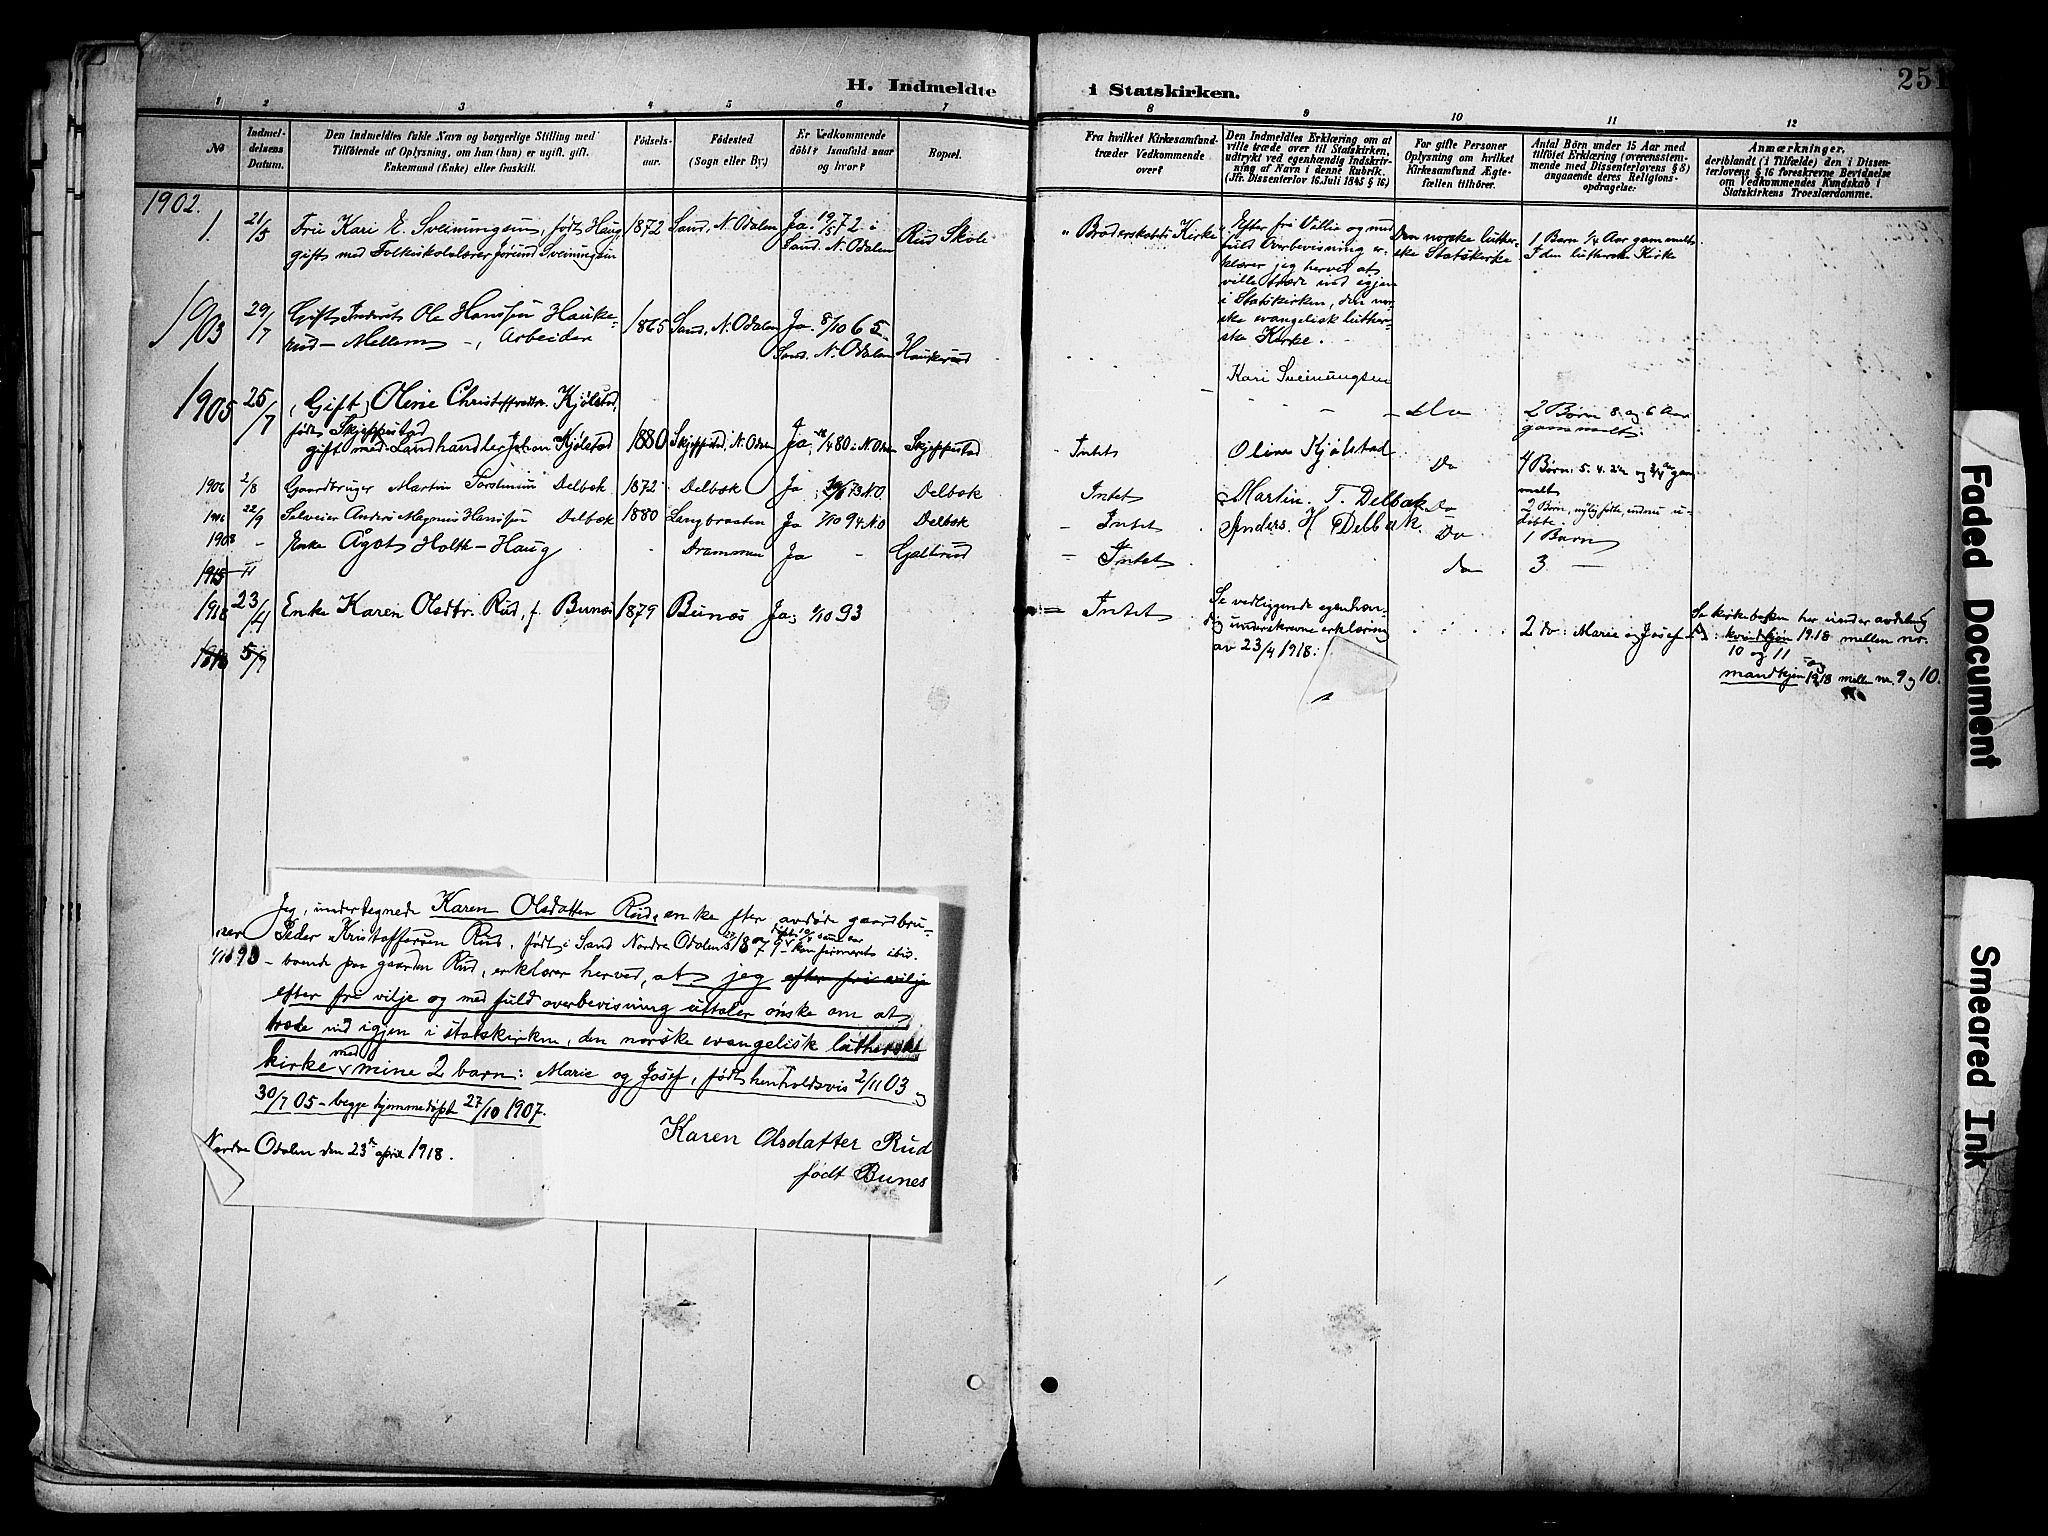 H. Indmeldte i Statskirken.
251
1 2 3 4 5 6 7 8 9 10 11 12
No
Indmel-
delsens
Datum.
Den Indmeldtes fulde Navn og borgerlige Stilling med
Tilföiende af Oplysning, om han (hun) er ugift, gift,
Enkemand (Enke) eller fraskilt.
Födsels-
aar.
Födested
(Sogn eller By.)
Er Vedkommende
döbt? Isaafald naar
og hvor?
Bopæl.
Fra hvilket Kirkesamfund-
træder Vedkommende
over?
Den Indmeldtes Erklæring om at
ville træde over til Statskirken,
udtrykt ved egenhændig Indskriv-
ning af Navn i denne Rubrik.
(Jfr. Dissenterlov 16. Juli 1845 § 16)
For gifte Personer
Oplysning om hvilket
Kirkesamfund Ægte-
fællen tilhörer.
Antal Börn under 15 Aar med
tilföiet Erklæring (overensstem-
mende med Dissenterlovens § 8)
angaaende deres Religions-
opdragelse.
Anmærkninger,
deriblandt (i Tilfælde) den i Dissen-
terlovens § 16 foreskrevne Bevidnelse
om Vedkommendes Kundskab i
Statskirkens Troeslærdomme.
1902.
1. 21/5 Fru Kari E. Sveinungsen, født Haug, 1872 Sand, N. Odalen Ja. 19/5 72 i Rud Skole
gift med Folkeskolelærer Jørund Sveinungsen Sand, N. Odalen
" Broderskabets Kirke
Efter fri Villie og med
fuld Overbevisning er-
klærer jeg herved at
ville træde ind igjen
i Statskirken, den nor-
ske evangelisk luther-
ske Kirke.
Kari Sveinungsen
Den norske luther-
ske Statskirke
1 Barn 1/4 Aar gammelt
I den lutherske Kirke
1903 29/7 Gift Inderst Ole Hanssen Hauke- 1865 Sand, N. Odalen Ja. 8/10 65
rud - Mellem -, Arbeider Sand, N. Odalen Haukerud
Do 2 Børn 8 og 6 Aar
gammelt.
1905 25/7 (Gift) Oline Christoffersdtr. Kjølstad,
født Skjeppustad
gift med Landhandler Johan Kjølstad 1880 Ja, 80 i N. Odalen Skjeppustad
Intet Oline Kjølstad Do
4 Børn: 5. 4. 2 1/2 og 3/4 Aar gam
melt
1906 2/8 Gaardbruger Martin Torstensen Delbæk 1872 Delbæk Ja 73 N.O Delbæk
Intet Martin. T. Delbæk Do
2 Børn, nylig født, endnu u-
døbte.
1906 22/9 Selveier Anders Magnus Hanssen Delbæk 1880 Langbraaten Ja 7/10 94 N.O Delbæk
- Intet Anders. H Delbæk. Do 1 Barn
1908 - Enke Ågot Holth-Haug - Drammen Ja - Galterud
- Intet do 3 -
1915 - 11
1918 23/4 Enke Karen Olsdtr. Rud, f. Bunes 1879 Bunæs Ja; 1/10 93
= Intet
Se vedliggende egenhæn-
dig underskrevne erklæring
av 23/4 1918.
2 do: Marie og Josef
Se kirkeboken her under avdeling
A: kvindkjøn 1918 mellem nr.
10 og 11 og
mandkjøn 1918 mellem nr. 9 og 10.
1918 5/9
Jeg, undertegnede Karen Olsdatter Rud, enke efter avdøde gaardbru-
ger Peder Kristoffersen Rud, født i Sand Nordre Odalen 1879 døpt 10/8 samme aar konfirmert ibid.
1/10 93 - boende paa gaarden Rud, erklærer herved, at jeg efter fri vilje
efter fri vilje og med fuld overbevisning uttaler ønske om at
træde ind igjen i statskirken, den norske evangelisk lutherske
kirke med mine 2 barn: Marie og Josef, født henholdsvis 2/11 03 og
30/7 05 - begge hjemmedøpt 27/10 1907.
Nordre Odalen den 23de april 1918.
Karen Olsdatter Rud
født Bunes
Faded Document
Smeared Ink